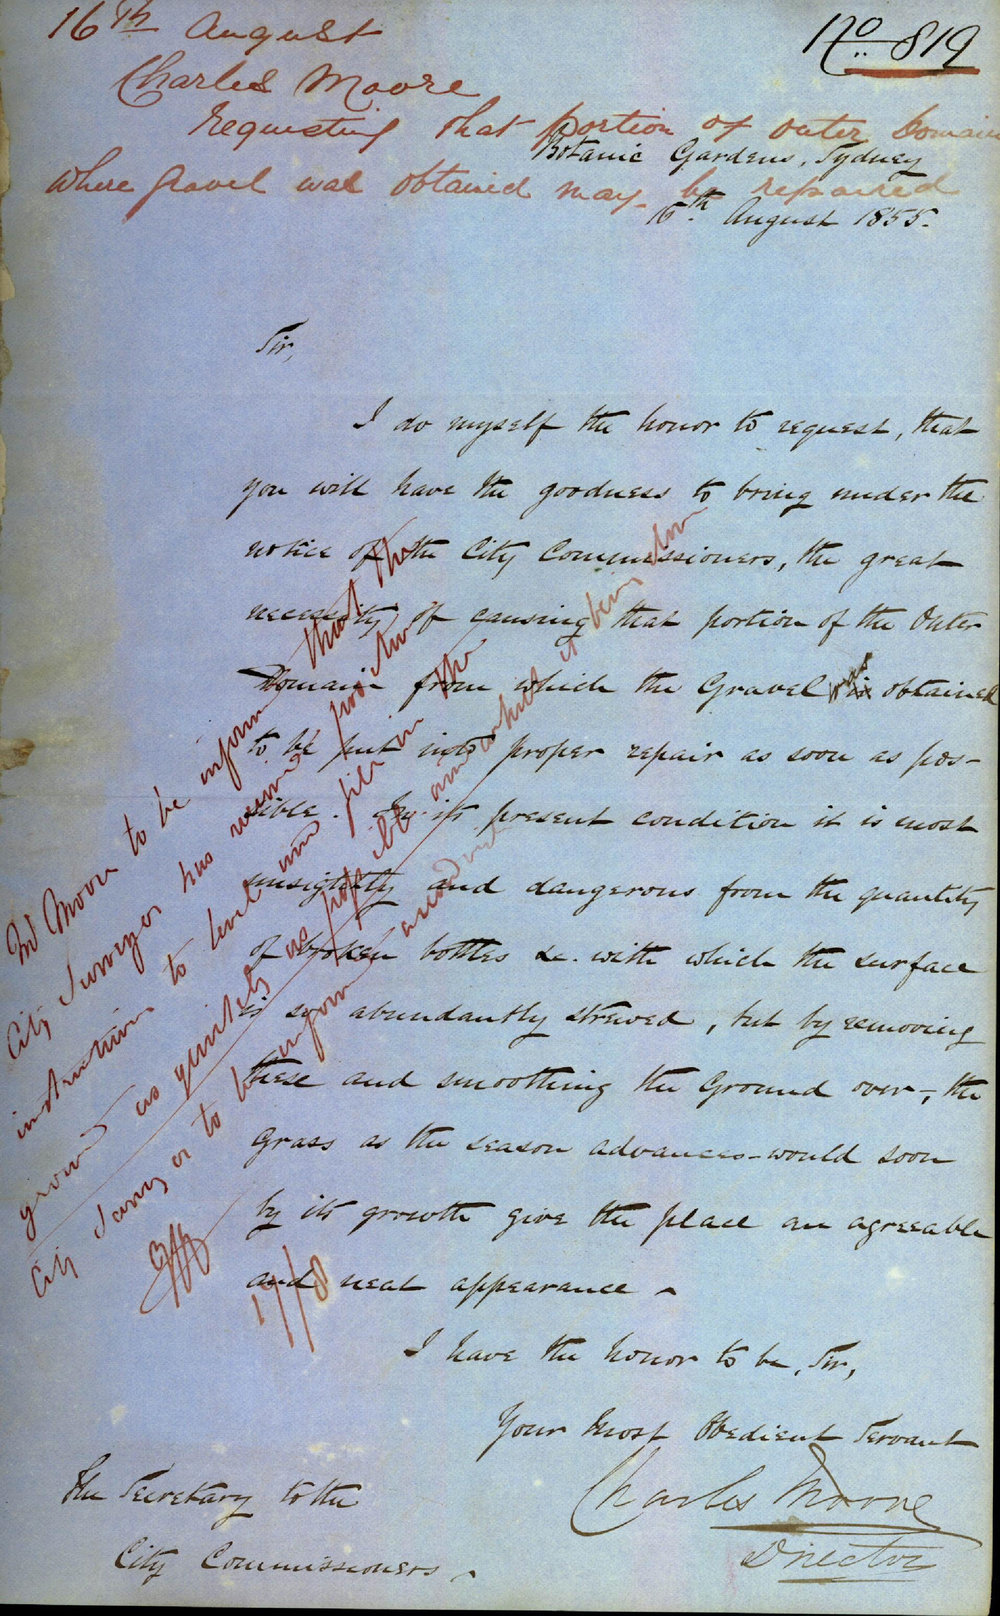 No 819
16th August
Charles Moore
Requesting that portion of outer Domain
where gravel was obtained may be repaired
Botanic Gardens, Sydney
16th August 1855.
Sir,
I do myself the honor to request, that
you will have the goodness to bring under the
notice of the City Commissioners, the great
necessity of causing that portion of the Outer
Domain from which the Gravel was obtained
to be put into proper repair as soon as pos-
sible. In its present condition it is most
unsightly and dangerous from the quantity
of broken bottles &c. with which the surface
is so abundantly strewed, but by removing
these and smoothing the Ground over, the
Grass as the season advances would soon
by its growth give the place an agreeable
and neat appearance
I have the honor to be, Sir,
Your Most Obedient Servant
Charles Moore
Director
The Secretary to the
City Commissioners
Mr Moore to be informed that the
City Surveyor has received positive
instructions to level and fill in the
ground as quickly as possible and whilst it being done
City Surveyor to be informed
17/8